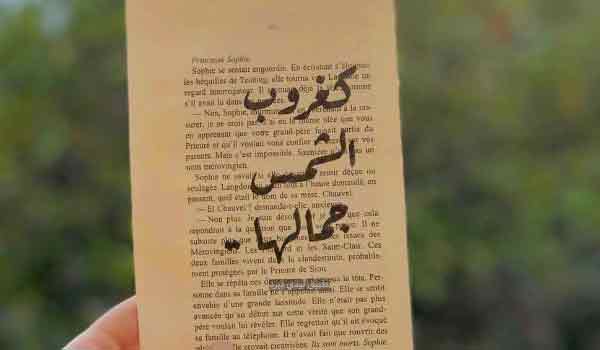 Princesse Sophie.
Sophie se sentait engourdie. En écoutant s'éloigner
les béquilles de Teabing, elle tourna vers La
regard interrogateur. Il
s'il avait lu dans
— Non, Sophie,
surer, je ne crois pas. J'ai eu la même idée que vous
en apprenant que votre grand-père faisait partie du
Prieuré et qu'il voulait vous confier
parents. Mais c'est impossible. Saunière
un nom mérovingien.
Sophie ne savait si elle devait se sentir déçue ou
soulagée. Langdon
quel était le nom de sa mère. Chauvel.
— Et Chauvel ? demanda-t-elle, anxieuse.
— Non plus. Je suis désolé, je sais que cela
répondrait à la question que
subsiste plus que deux
Mérovingiens. Les
et les Saint-Clair. Ces
deux familles vivent dans la clandestinité, probable-
ment protégées par le Prieuré de Sion.
Elle se répéta ces
dans la tête. Per-
sonne dans sa famille ne s'appelait ainsi. Elle se sentit
envahie d'une grande lassitude. Elle n'était pas plus
avancée qu'au début sur cette vérité que son grand-
père voulait lui révéler. Elle regrettait qu'il ait évoqué
sa famille au téléphone. Il n'avait fait que rouvrir des
Ils sont morts, Sophie.
كغروب
الشمس
جمالها